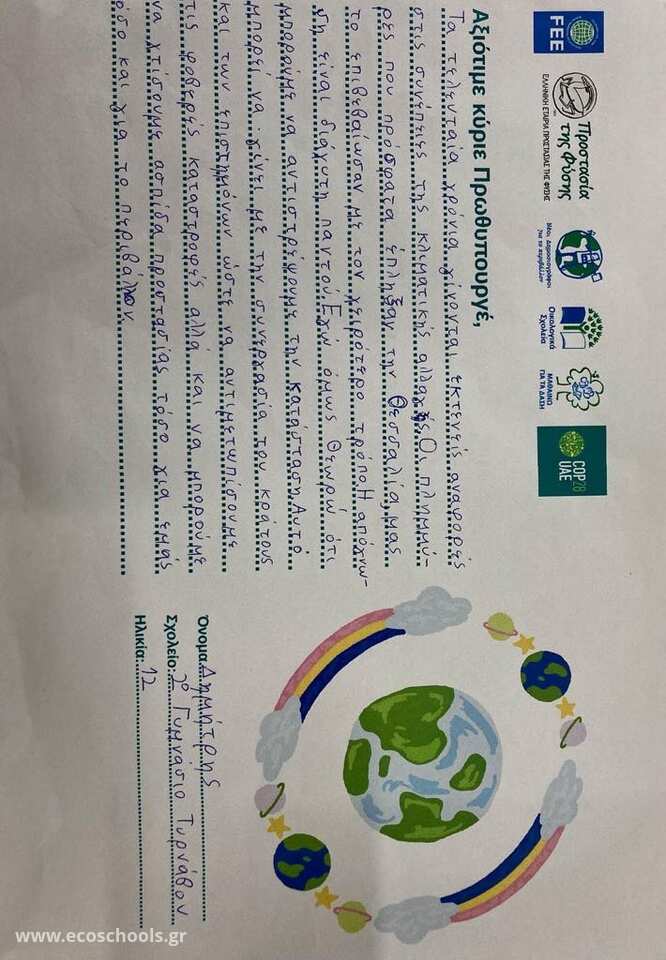 FEE
Προστασία
της Φύσης
ΕΛΛΗΝΙΚΗ ΕΤΑΙΡΙΑ ΠΡΟΣΤΑΣΙΑΣ ΤΗΣ ΦΥΣΗΣ
Νέοι Δημοσιογράφοι
για το περιβάλλον
Οικολογικά
Σχολεία
ΜΑΘΑΙΝΩ
ΓΙΑ ΤΑ ΔΑΣΗ
COP28
UAE
Αξιότιμε κύριε Πρωθυπουργέ,
Τα τελευταία χρόνια γίνονται εκτενείς αναφορές
στις συνέπειες της κλιματικής αλλαγής. Οι πλημμύ-
ρες που πρόσφατα έπληξαν την Θεσσαλία μας
το επιβεβαίωσαν με τον χειρότερο τρόπο. Η απόγνω-
ση είναι διάχυτη παντού. Εγώ όμως θεωρώ ότι
μπορούμε να αντιστρέψουμε την κατάσταση. Αυτό
μπορεί να γίνει με την συνεργασία του κράτους
και των επιστημόνων ώστε να αντιμετωπίσουμε
τις φοβερές καταστροφές αλλά και να μπορούμε
να χτίσουμε ασπίδα προστασίας τόσο για εμάς
όσο και για το περιβάλλον
Όνομα: Δημήτρης
Σχολείο: 2ο Γυμνάσιο Τυρνάβου
Ηλικία: 12
www.ecoschools.gr